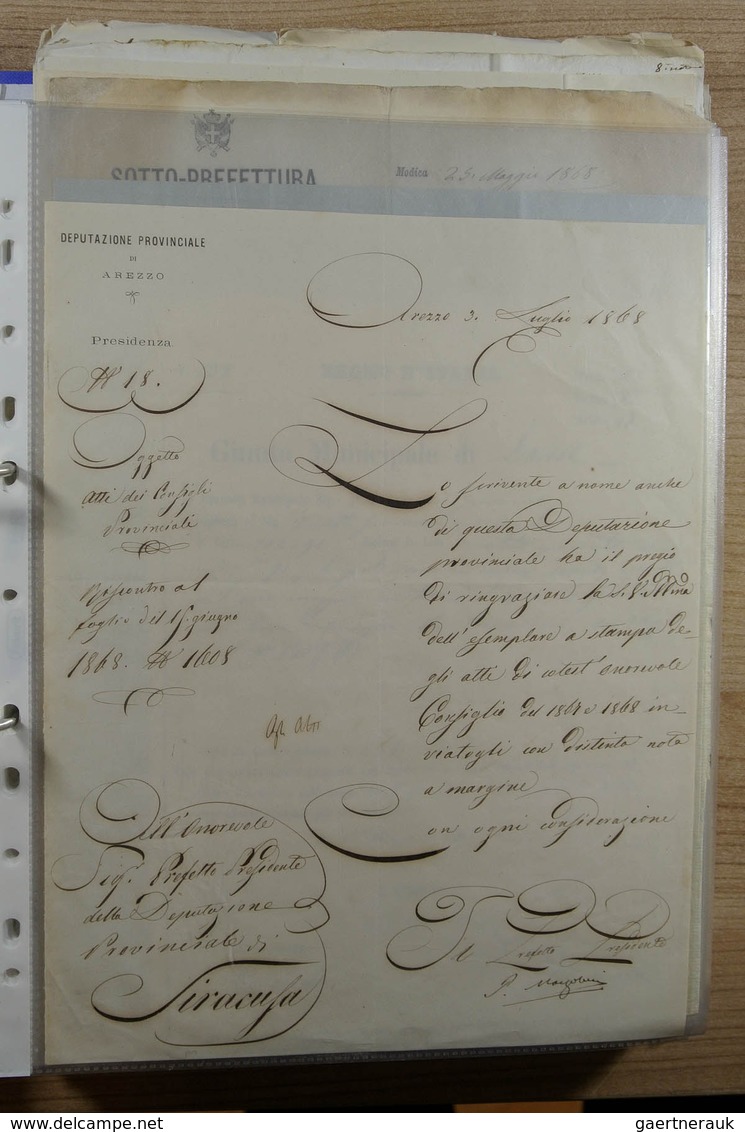 SOTTO-PREFETTURA
Modica 23. Maggio 1868
DEPUTAZIONE PROVINCIALE
DI
AREZZO
Presidenza
N 18.
Arezzo 3. Luglio 1868
Oggetto
Atti dei Consigli
Provinciali
Riscontro al
foglio del 15. giugno
1868. N 1608
Lo scrivente a nome anche
di questa Deputazione
provinciale ha il pregio
di ringraziare la S.V. Illma
dell'esemplare a stampa de-
gli atti di cotest'onorevole
Consiglio del 1867 e 1868 in-
viatogli con distinta nota
a margine
Con ogni considerazione
Agli Atti
All'Onorevole
Sig. Prefetto Presidente
della Deputazione
Provinciale di
Siracusa
Il Prefetto Presidente
gaertnerauk / delcampe.net